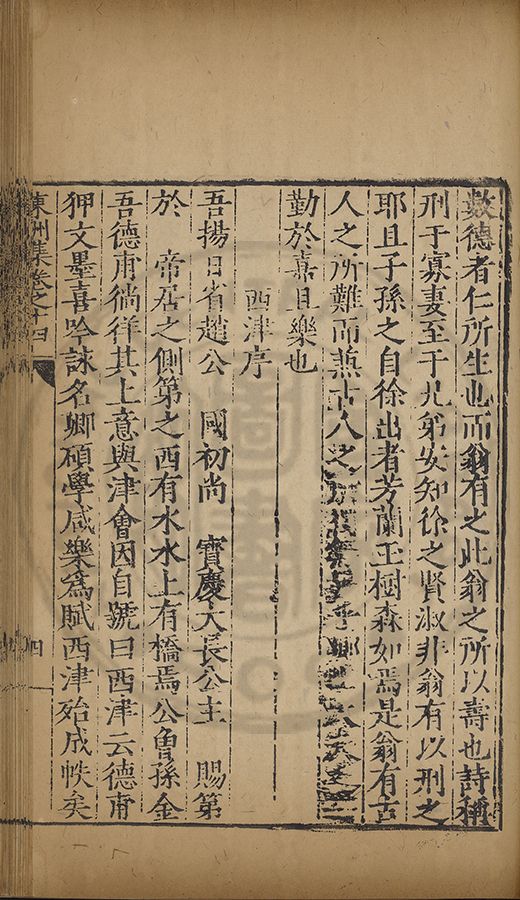 數德者仁所生也而翁有之此翁之所以壽也詩稱
刑于寡妻至于兄弟安知徐之賢淑非翁有以刑之
耶且子孫之自徐出者芳蘭玉樹森如焉是翁有古
人之所難而兼古人之
勤於嘉且樂也
西津序
吾揚日省趙公 國初尚 寶慶大長公主 賜第
於 帝居之側第之西有水水上有橋焉公曾孫金
吾德甫徜徉其上意與津會因自號曰西津云德甫
狎文墨喜吟諫名卿碩學咸樂為賦西津殆成帙矣
東洲集卷之十四
四